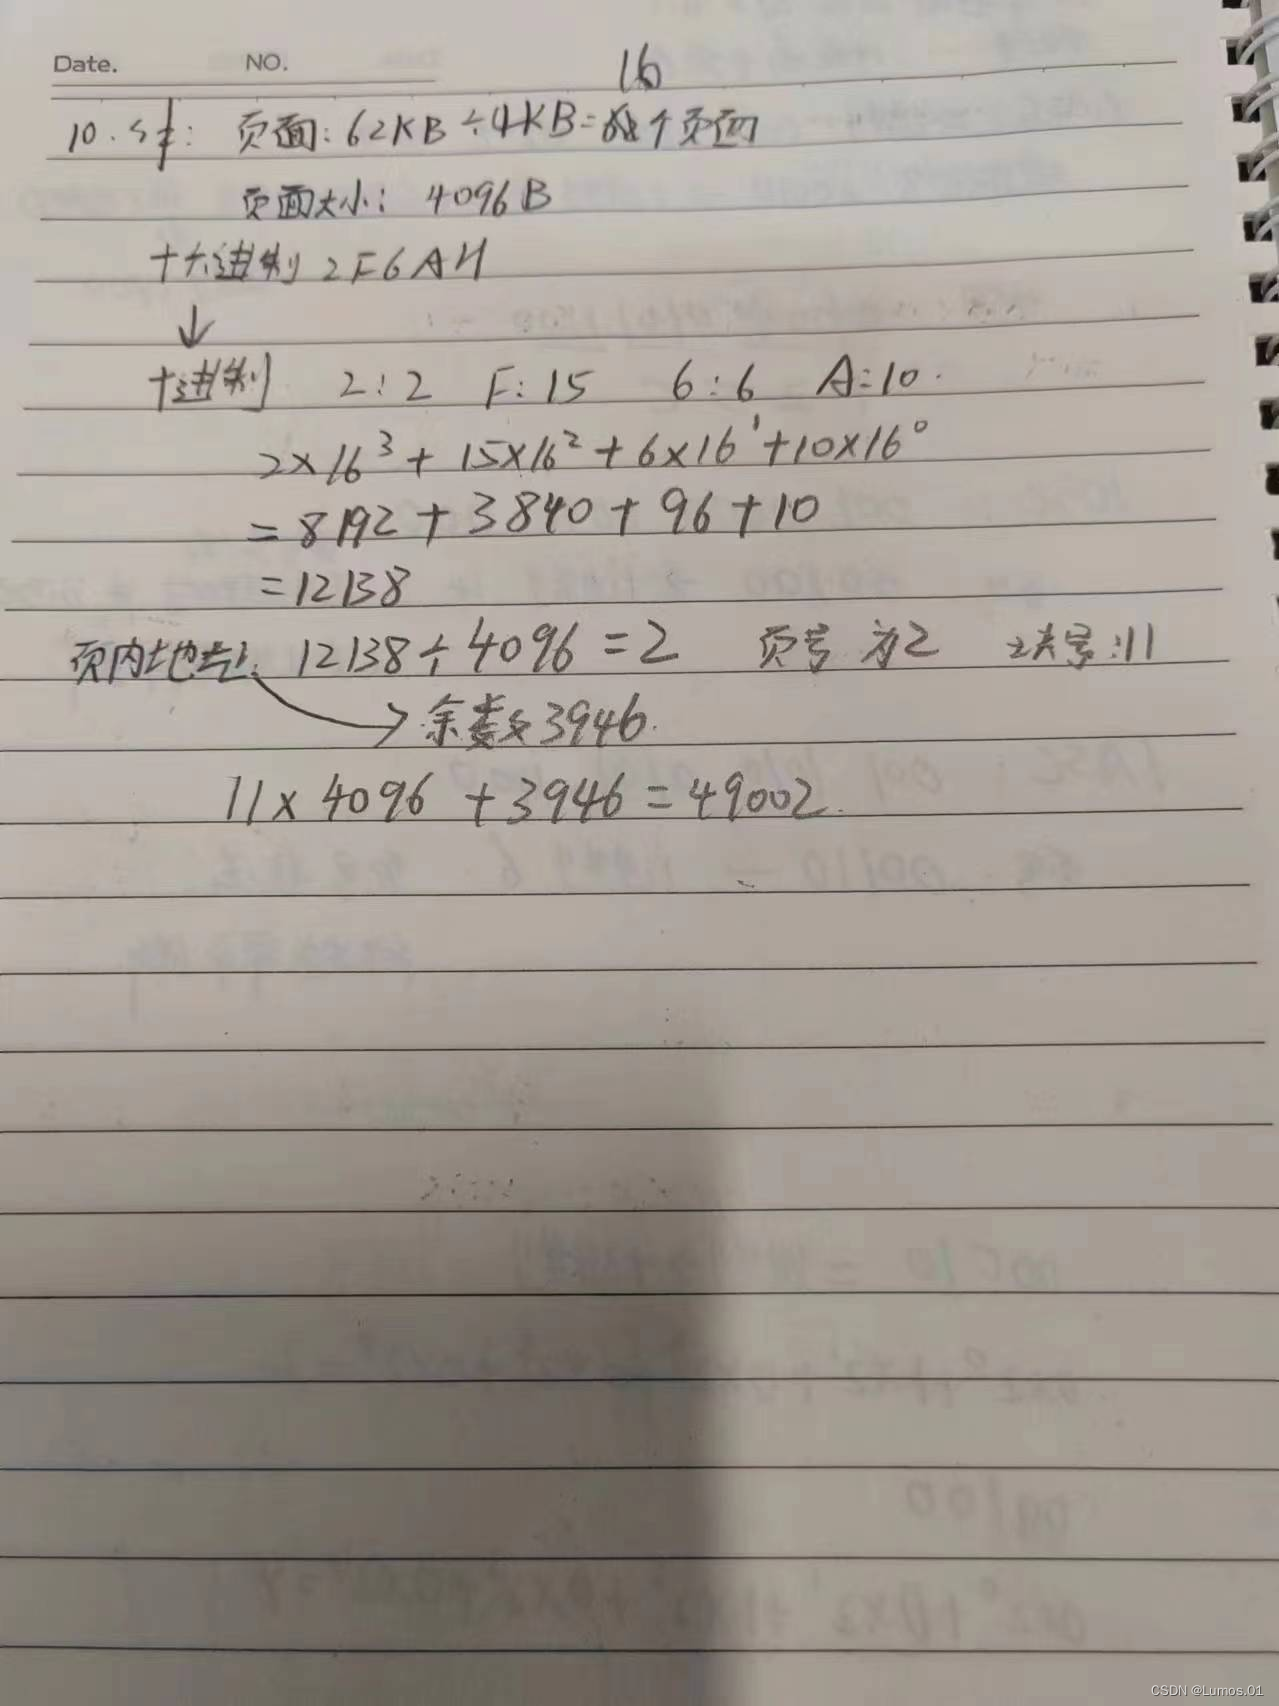 Date. NO.
16
10. 页面: 62KB÷4KB= 个页面
页面大小: 4096B
十六进制 2F6AH
↓
十进制 2:2 F:15 6:6 A:10.
2×16³+15×16²+6×16¹+10×16⁰
=8192+3840+96+10
=12138
页内地址: 12138÷4096=2 页号为2 块号:11
→余数3946.
11×4096+3946=49002.
CSDN @Lumos.01